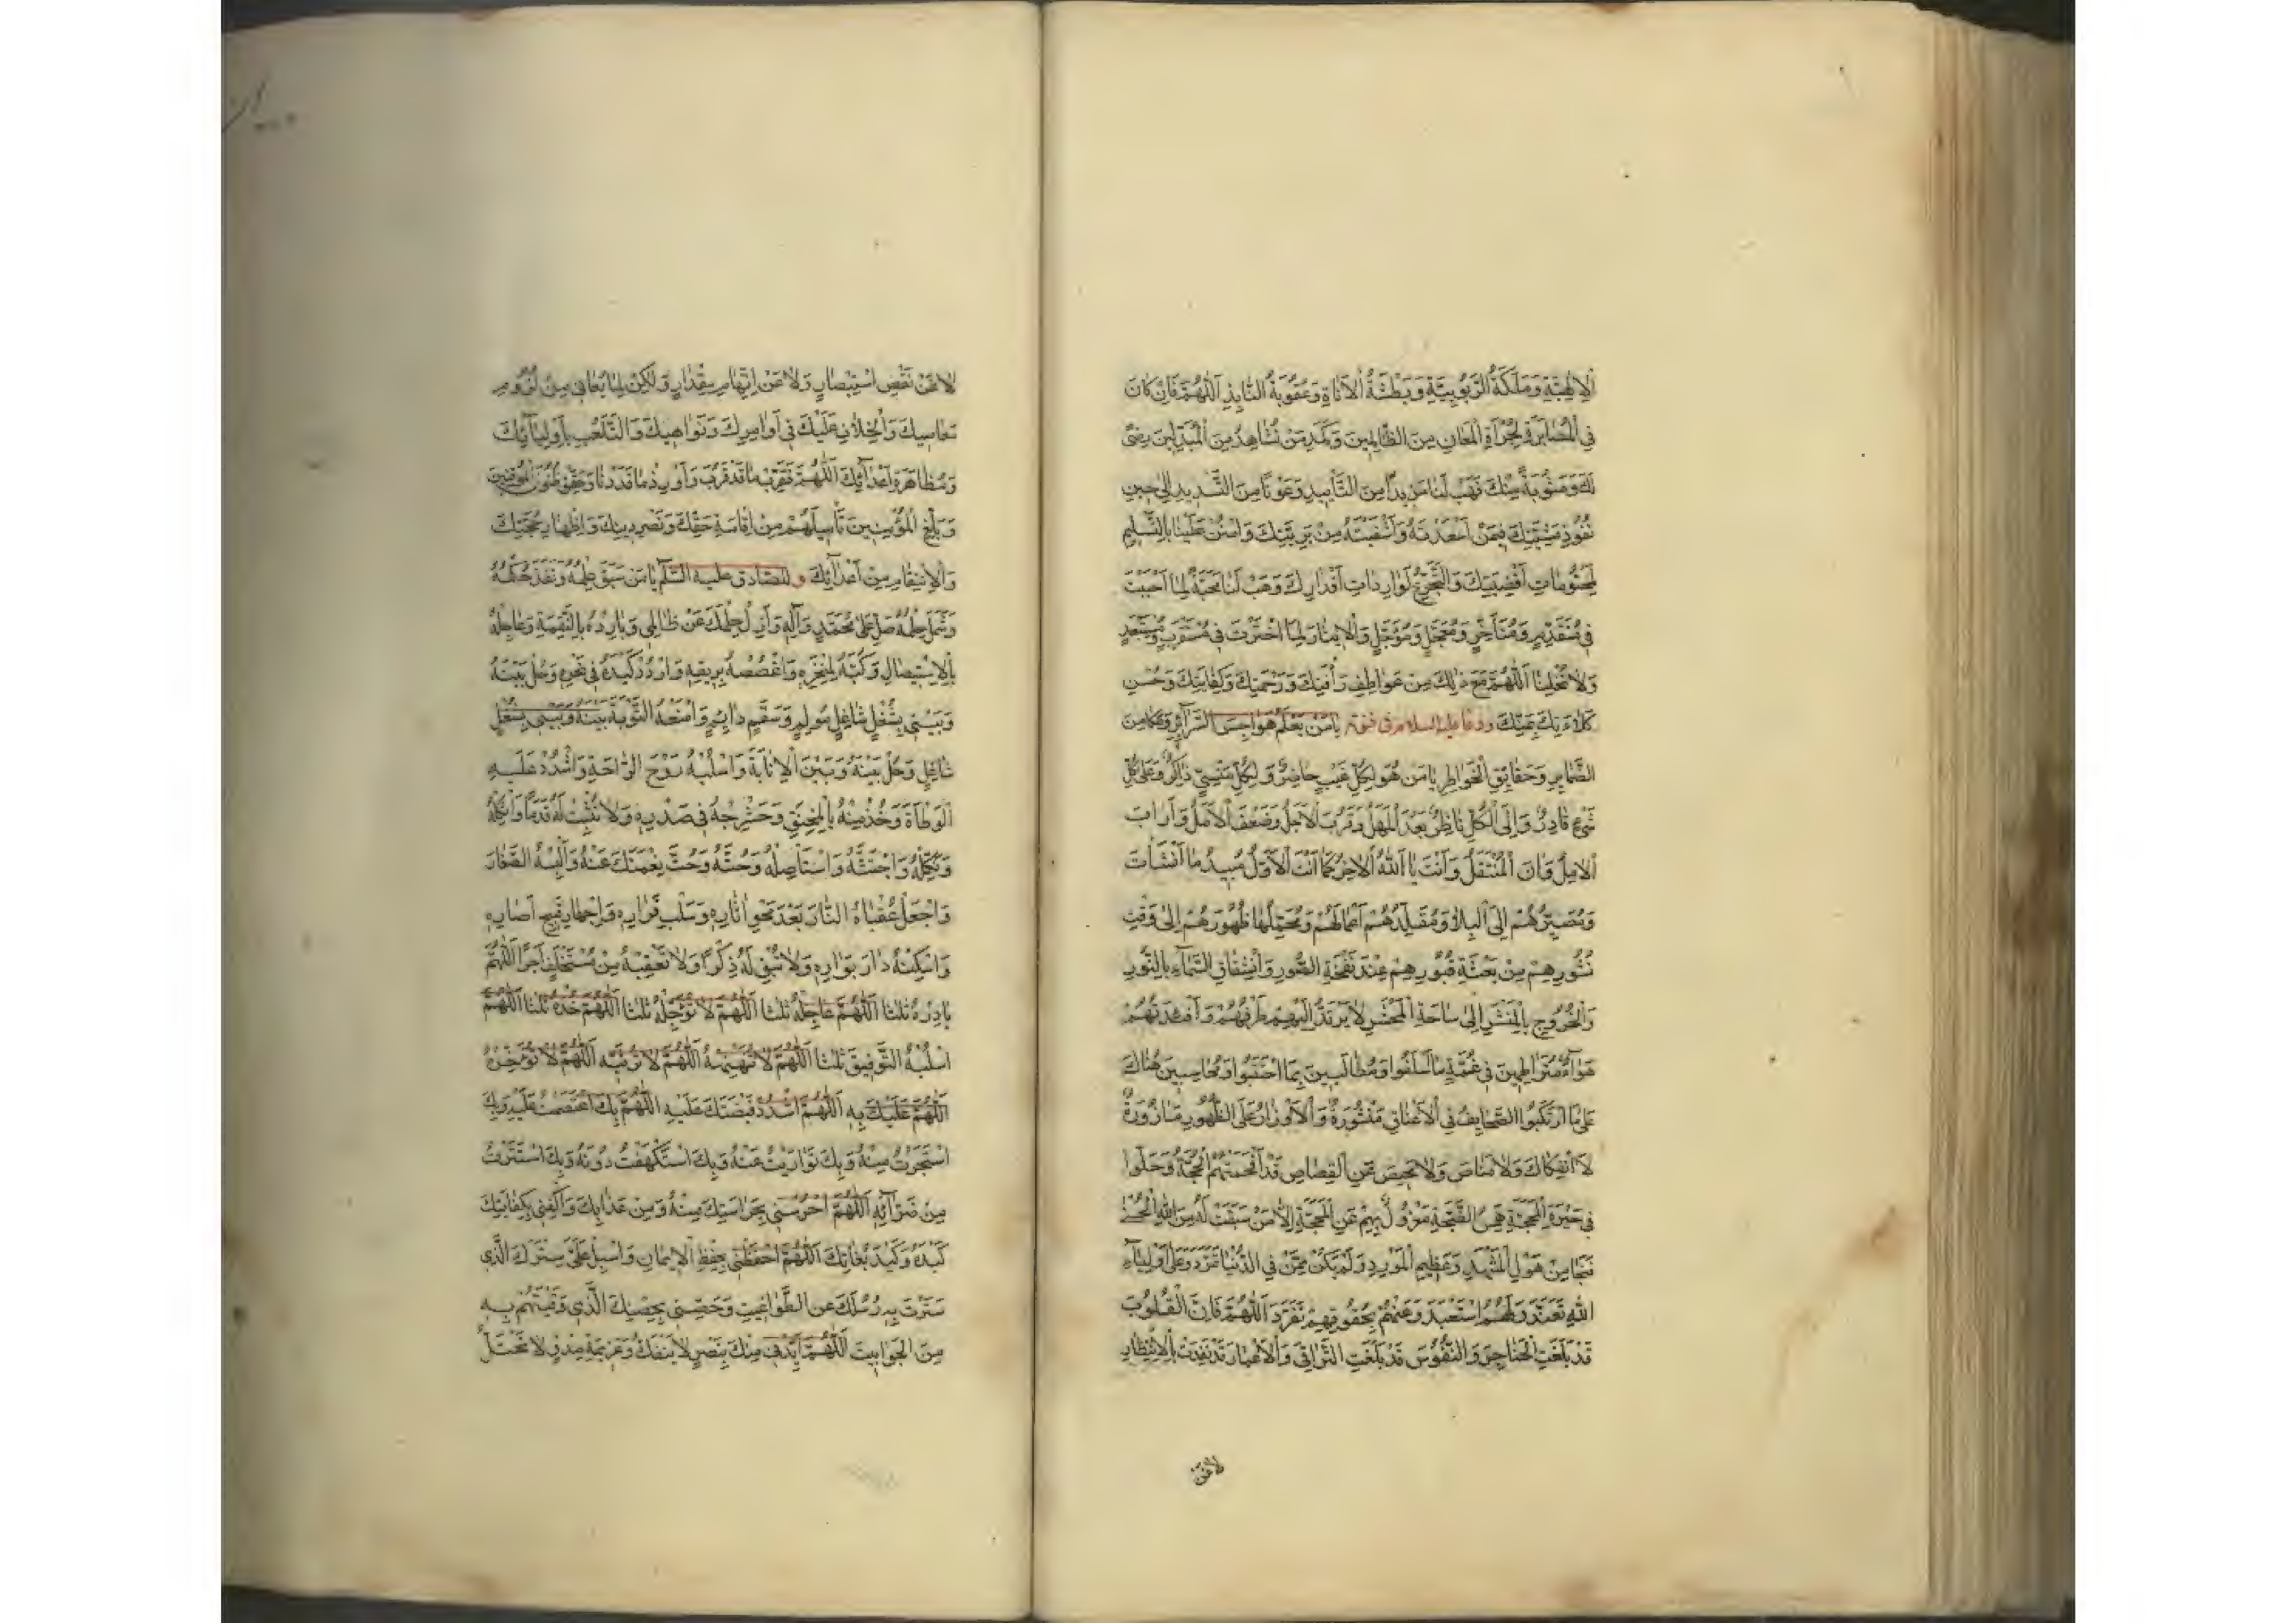 الْإِلٰهِيَّةِ وَمَلَكَةُ الرَّبُوبِيَّةِ وَبَطْشَةُ الْأَنَاةِ وَعُقُوبَةُ التَّأْيِيدِ اَللّٰهُمَّ فَإِنْ كَانَ
فِي الْمُصَابَرَةِ لِحَرَارَةِ الْمَعَانِ مِنَ الظَّالِمِينَ وَكَمَدِ مَنْ نُشَاهِدُ مِنَ الْمُبَدِّلِينَ رِضًى
لَكَ وَمَثُوبَةً مِنْكَ فَهَبْ لَنَا مَزِيدًا مِنَ التَّأْيِيدِ وَعَوْنًا مِنَ التَّسْدِيدِ إِلَى حِينِ
نُفُوذِ مَشِيَّتِكَ فِيمَنْ أَسْعَدْتَهُ وَأَشْقَيْتَهُ مِنْ بَرِيَّتِكَ وَامْنُنْ عَلَيْنَا بِالتَّسْلِيمِ
لِمَحْتُومَاتِ أَقْضِيَتِكَ وَالتَّجَرُّعِ لِوَارِدَاتِ أَقْدَارِكَ وَهَبْ لَنَا مَحَبَّةً لِمَا أَحْبَبْتَ
فِي مُتَقَدِّمٍ وَمُتَأَخِّرٍ وَمُتَعَجَّلٍ وَمُؤَجَّلٍ وَالْإِيثَارَ لِمَا اخْتَرْتَ فِي مُسْتَقْرَبٍ وَمُسْتَبْعَدٍ
وَلَا تُخْلِنَا اللّٰهُمَّ مَعَ ذٰلِكَ مِنْ عَوَاطِفِ رَأْفَتِكَ وَرَحْمَتِكَ وَكِفَايَتِكَ وَحُسْنِ
كَلَاءَتِكَ بِمَنِّكَ ودعا عليه السلام في قنوته يَا مَنْ يَعْلَمُ هَوَاجِسَ السَّرَائِرِ وَمَكَامِنَ
الضَّمَايِرِ وَحَقَايِقَ الْخَوَاطِرِ يَا مَنْ هُوَ لِكُلِّ غَيْبٍ حَاضِرٌ وَلِكُلِّ مَنْسِيٍّ ذَاكِرٌ وَعَلَى كُلِّ
شَيْءٍ قَادِرٌ وَإِلَى الْكُلِّ نَاظِرٌ بَعُدَ الْمَهَلُ وَقَرُبَ الْأَجَلُ وَضَعُفَ الْأَمَلُ وَآرَابَ
الْأَمَلُ وَآنَ الْمُنْتَقَلُ وَأَنْتَ يَا اللّٰهُ الْآخِرُ كَمَا أَنْتَ الْأَوَّلُ مُبِيدُ مَا أَنْشَأْتَ
وَمُصَيِّرُهُمْ إِلَى الْبِلَى وَمُقَلِّدُهُمْ أَعْمَالَهُمْ وَمُحَمِّلُهَا ظُهُورَهُمْ إِلَى وَقْتِ
نُشُورِهِمْ مِنْ بَعْثَةِ قُبُورِهِمْ عِنْدَ نَفْخَةِ الصُّورِ وَانْشِقَاقِ السَّمَاءِ بِالنُّورِ
وَالْخُرُوجِ بِالْمَنْشَرِ إِلَى سَاحَةِ الْمَحْشَرِ لَا يَرْتَدُّ إِلَيْهِمْ طَرْفُهُمْ وَأَفْئِدَتُهُمْ
هَوَاءٌ مُتَرَاطِمِينَ فِي غُمَّةٍ مِمَّا أَسْلَفُوا وَمُطَالَبِينَ بِمَا احْتَقَبُوا وَمُحَاسَبِينَ هُنَاكَ
عَلَى مَا ارْتَكَبُوا الصَّحَايِفُ فِي الْأَعْنَاقِ مَنْشُورَةٌ وَالْأَوْزَارُ عَلَى الظُّهُورِ مَأْزُورَةٌ
لَا انْفِكَاكَ وَلَا مَنَاصَ وَلَا مَحِيصَ عَنِ الْقِصَاصِ قَدْ أَفْحَمَتْهُمُ الْحُجَّةُ وَحَلُّوا
فِي حَيْرَةِ الْمَحَجَّةِ هَمْسُ الضَّجَّةِ مَعْزُولٌ بِهِمْ عَنِ الْمَحَجَّةِ إِلَّا مَنْ سَبَقَتْ لَهُ مِنَ اللّٰهِ الْحُسْنَى
فَنَجَا مِنْ هَوْلِ الْمَشْهَدِ وَعَظِيمِ الْمَوْرِدِ وَلَمْ يَكُنْ مِمَّنْ فِي الدُّنْيَا تَمَرَّدَ وَعَلَى أَوْلِيَاءِ
اللّٰهِ تَعَنَّدَ وَلَهُمُ اسْتَعْبَدَ وَعَنْهُمْ بِحُقُوقِهِمْ تَفَرَّدَ اَللّٰهُمَّ فَإِنَّ الْقُلُوبَ
قَدْ بَلَغَتِ الْحَنَاجِرَ وَالنُّفُوسَ قَدْ بَلَغَتِ التَّرَاقِيَ وَالْأَعْمَارَ قَدْ نَفِدَتْ بِالْاِنْتِظَارِ
لَا عَنْ
لَا عَنْ نَقْصِ اسْتِبْصَارٍ وَلَا عَنْ اِتِّهَامِ مِقْدَارٍ وَلٰكِنْ لِمَا تُعَانِي مِنْ
مَعَاصِيكَ وَالْخِلَافِ عَلَيْكَ فِي أَوَامِرِكَ وَنَوَاهِيكَ وَالتَّلَعُّبِ بِأَوْلِيَائِكَ
وَمُظَاهَرَةِ أَعْدَائِكَ اَللّٰهُمَّ فَقَرِّبْ مَا قَدْ قَرُبَ وَأَوْرِدْ مَا قَدْ دَنَا وَحَقِّقْ ظُنُونَ الْمُوقِنِينَ
وَبَلِّغِ الْمُؤْمِنِينَ تَأْمِيلَهُمْ مِنْ إِقَامَةِ حَقِّكَ وَنَصْرِ دِينِكَ وَإِظْهَارِ حُجَّتِكَ
وَالْاِنْتِقَامِ مِنْ أَعْدَائِكَ و للصّادق عليه السّلم يَا مَنْ سَبَقَ عِلْمُهُ وَنَفَذَ حُكْمُهُ
وَشَمِلَ حِلْمُهُ صَلِّ عَلَى مُحَمَّدٍ وَآلِهِ وَأَزِلْ حِلْمَكَ عَنْ ظَالِمِي وَبَادِرْهُ بِالنَّقِمَةِ وَعَاجِلْهُ
بِالْاِسْتِيصَالِ وَكُبَّهُ لِمَنْخَرِهِ وَاغْصُصْهُ بِرِيقِهِ وَارْدُدْ كَيْدَهُ فِي نَحْرِهِ وَحُلْ بَيْنَهُ
وَبَيْنِي بِشُغْلٍ شَاغِلٍ مُولِمٍ وَسَقَمٍ دَايِمٍ وَامْنَعْهُ التَّوْبَةَ بَيْنَهُ وَبَيْنِي بِشُغْلٍ
شَاغِلٍ وَحُلْ بَيْنَهُ وَبَيْنَ الْإِنَابَةِ وَاسْلُبْهُ رَوْحَ الرَّاحَةِ وَاشْدُدْ عَلَيْهِ
الْوَطْأَةَ وَخُذْ مِنْهُ بِالْمُخَنَّقِ وَحَشْرِجْهُ فِي صَدْرِهِ وَلَا تُثْبِتْ لَهُ قَدَمًا وَأَثْكِلْهُ
وَنَكِّلْهُ وَاجْتَثَّهُ وَاسْتَأْصِلْهُ وَحُثَّهُ وَحُثَّ نِعْمَتَكَ عَنْهُ وَأَلْبِسْهُ الصَّغَارَ
وَاجْعَلْ عُقْبَاهُ النَّارَ بَعْدَ مَحْوِ آثَارِهِ وَسَلْبِ قَرَارِهِ وَإِجْهَارِ قَبِيحِ آصَارِهِ
وَأَسْكِنْهُ دَارَ بَوَارِهِ وَلَا تُبْقِ لَهُ ذِكْرًا وَلَا تُعَقِّبْهُ مِنْ مُسْتَخْلَفٍ أَجْرًا اَللّٰهُمَّ
بَادِرْهُ ثلثا اَللّٰهُمَّ عَاجِلْهُ ثلثا اَللّٰهُمَّ لَا تُؤَجِّلْهُ ثلثا اَللّٰهُمَّ خُذْهُ ثلثا اَللّٰهُمَّ
اسْلُبْهُ التَّوْفِيقَ ثلثا اَللّٰهُمَّ لَا تُنْهِضْهُ اَللّٰهُمَّ لَا تَرُثْهُ اَللّٰهُمَّ لَا تُؤَخِّرْهُ
اَللّٰهُمَّ عَلَيْكَ بِهِ اَللّٰهُمَّ اشْدُدْ قَبْضَتَكَ عَلَيْهِ اَللّٰهُمَّ بِكَ اعْتَصَمْتُ عَلَيْهِ وَبِكَ
اسْتَجَرْتُ مِنْهُ وَبِكَ تَوَارَيْتُ عَنْهُ وَبِكَ اسْتَكْهَفْتُ دُونَهُ وَبِكَ اسْتَتَرْتُ
مِنْ ضَرَّائِهِ اَللّٰهُمَّ احْرُسْنِي بِحَرَاسَتِكَ مِنْهُ وَمِنْ عَذَابِكَ وَاكْفِنِي بِكِفَايَتِكَ
كَيْدَهُ وَكَيْدَ بُغَاتِكَ اَللّٰهُمَّ احْفَظْنِي بِحِفْظِ الْإِيمَانِ وَأَسْبِلْ عَلَيَّ سِتْرَكَ الَّذِي
سَتَرْتَ بِهِ رُسُلَكَ عَنِ الطَّوَاغِيتِ وَحَصِّنِّي بِحِصْنِكَ الَّذِي وَقَيْتَهُمْ بِهِ
مِنَ الْجَوَابِيتِ اَللّٰهُمَّ أَيِّدْنِي مِنْكَ بِنَصْرٍ لَا يَنْفَكُّ وَعَزِيمَةِ صِدْقٍ لَا تَخْتَلُّ